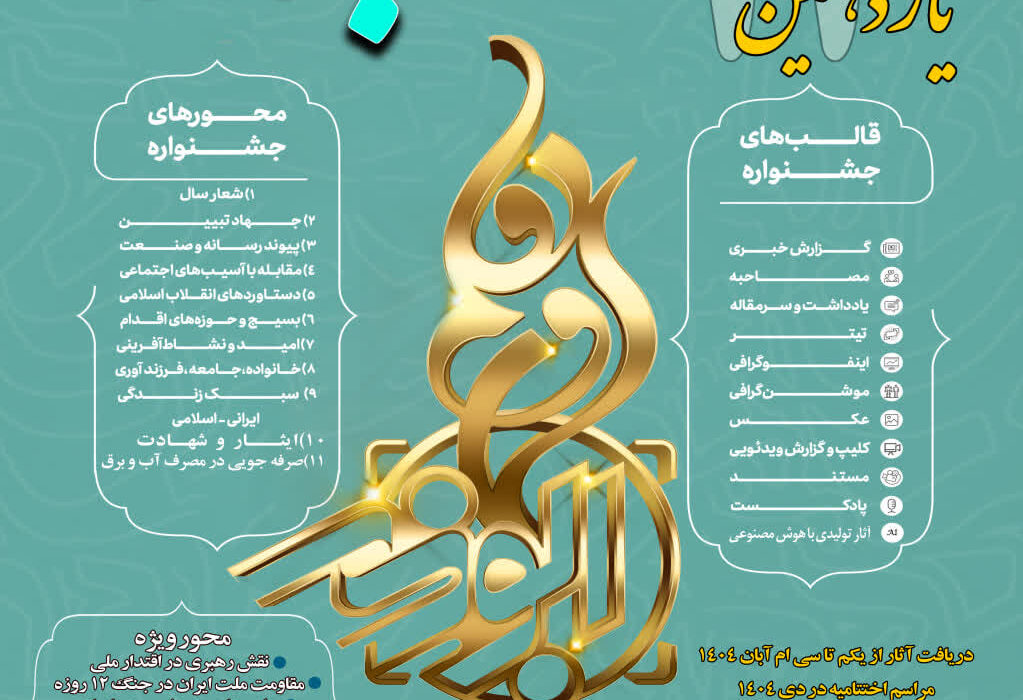 یازدهمین
قالب‌های
جشنواره
گزارش خبری
مصاحبه
یادداشت و سرمقاله
تیتر
اینفوگرافی
موشن‌گرافی
عکس
کلیپ و گزارش ویدئویی
مستند
پادکست
آثار تولیدی با هوش مصنوعی
AI
محورهای
جشنواره
۱) شعار سال
۲) جهاد تبیین
۳) پیوند رسانه و صنعت
۴) مقابله با آسیب‌های اجتماعی
۵) دستاوردهای انقلاب اسلامی
۶) بسیج و حوزه‌های اقدام
۷) امید و نشاط‌آفرینی
۸) خانواده، جامعه، فرزندآوری
۹) سبک زندگی
ایرانی - اسلامی
۱۰) ایثار و شهادت
۱۱) صرفه جویی در مصرف آب و برق
محور ویژه
نقش رهبری در اقتدار ملی
مقاومت ملت ایران در جنگ ۱۲ روزه
دریافت آثار از یکم تا سی ام آبان ۱۴۰۴
مراسم اختتامیه در دی ۱۴۰۴